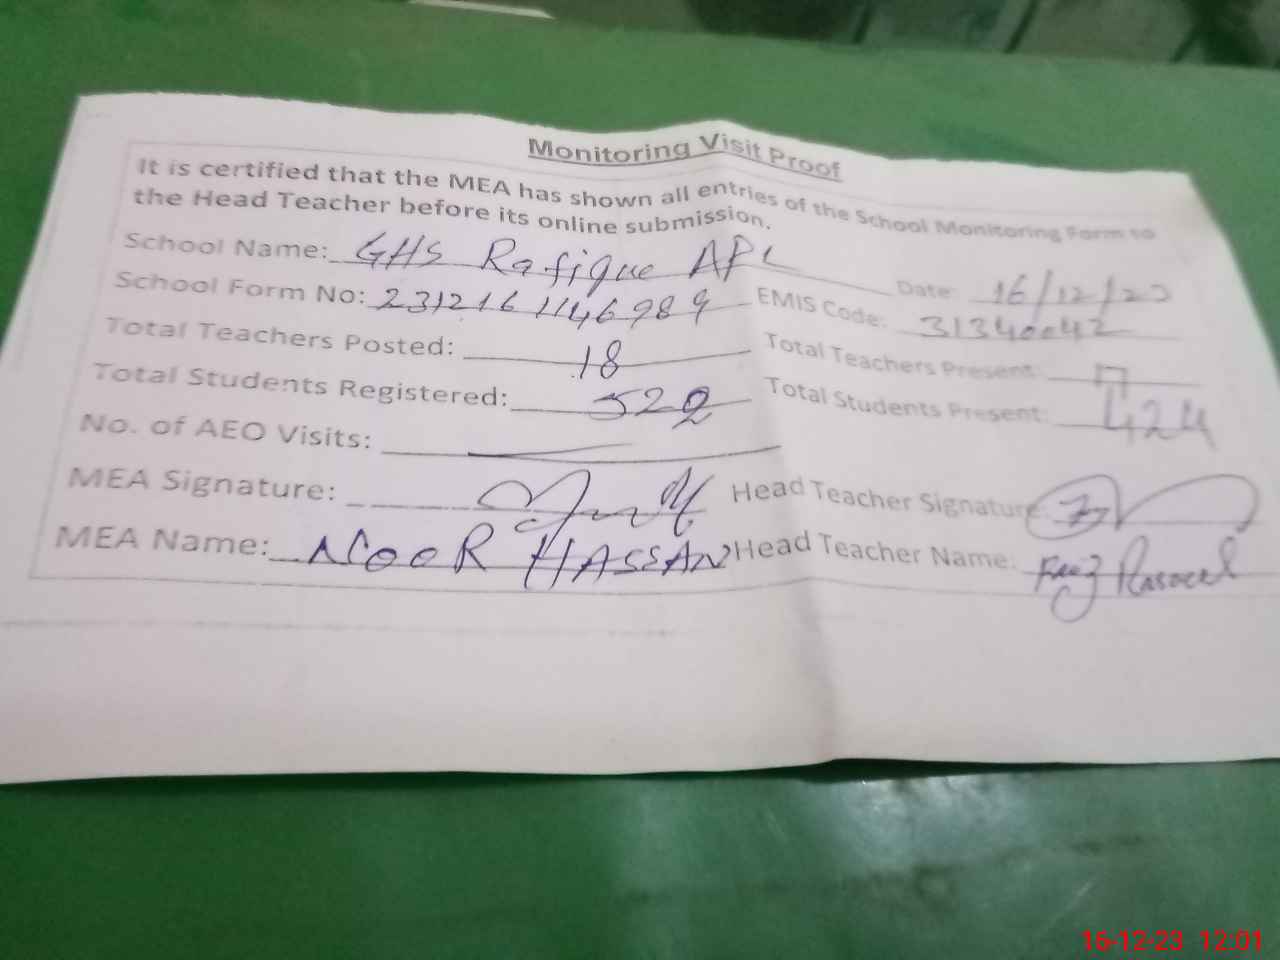 Monitoring Visit Proof
It is certified that the MEA has shown all entries of the School Monitoring Form to
the Head Teacher before its online submission.
School Name: GHS Rafique APE Date: 16/12/23
School Form No: 231216 1146989 EMIS Code: 31340042
Total Teachers Posted: 18 Total Teachers Present: 17
Total Students Registered: 522 Total Students Present: 424
No. of AEO Visits:
MEA Signature: Head Teacher Signature
MEA Name: NOOR HASSAN Head Teacher Name: Rasool
16-12-23 12:01